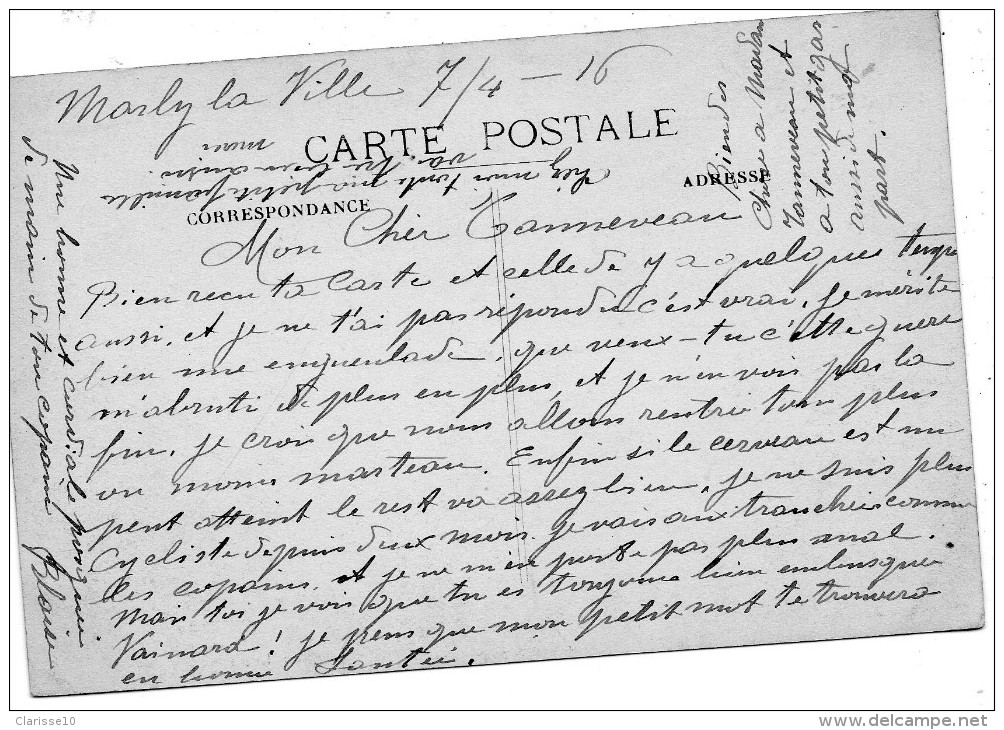 Marly la Ville 7/4 - 16
CARTE POSTALE
CORRESPONDANCE
ADRESSE
Mon Cher Tanneveau
Bien reçu ta Carte et celle de y a quelques temps
aussi, et je ne t'ai pas répondu c'est vrai, je mérite
bien une engueulade, que veux-tu c'tte guere
m'abruti de plus en plus, et je n'en vois pas la
fin, je crois que nous allons rentrer tous plus
ou moins marteau. Enfin si le cerveau est un
peut atteint le rest va assez bien, je ne suis plus
Cycliste depuis deux mois. je vais aux tranchées comme
les copains, et je ne m'en porte pas plus mal.
Mais toi je vois que tu es toujours bien embusqué
Vainard! je pens que mon petit mot te trouvera
en bonne Santée.
Chez moi toute ma petite famille
va très bien aussi.
moi
Bien des
Chose a Madame
Tanneveau et
a ton petit gas
aussi de ma
part.
Une bonne et cordiale poignée
de main de ton copain Blaise
Clarisse10
www.delcampe.net